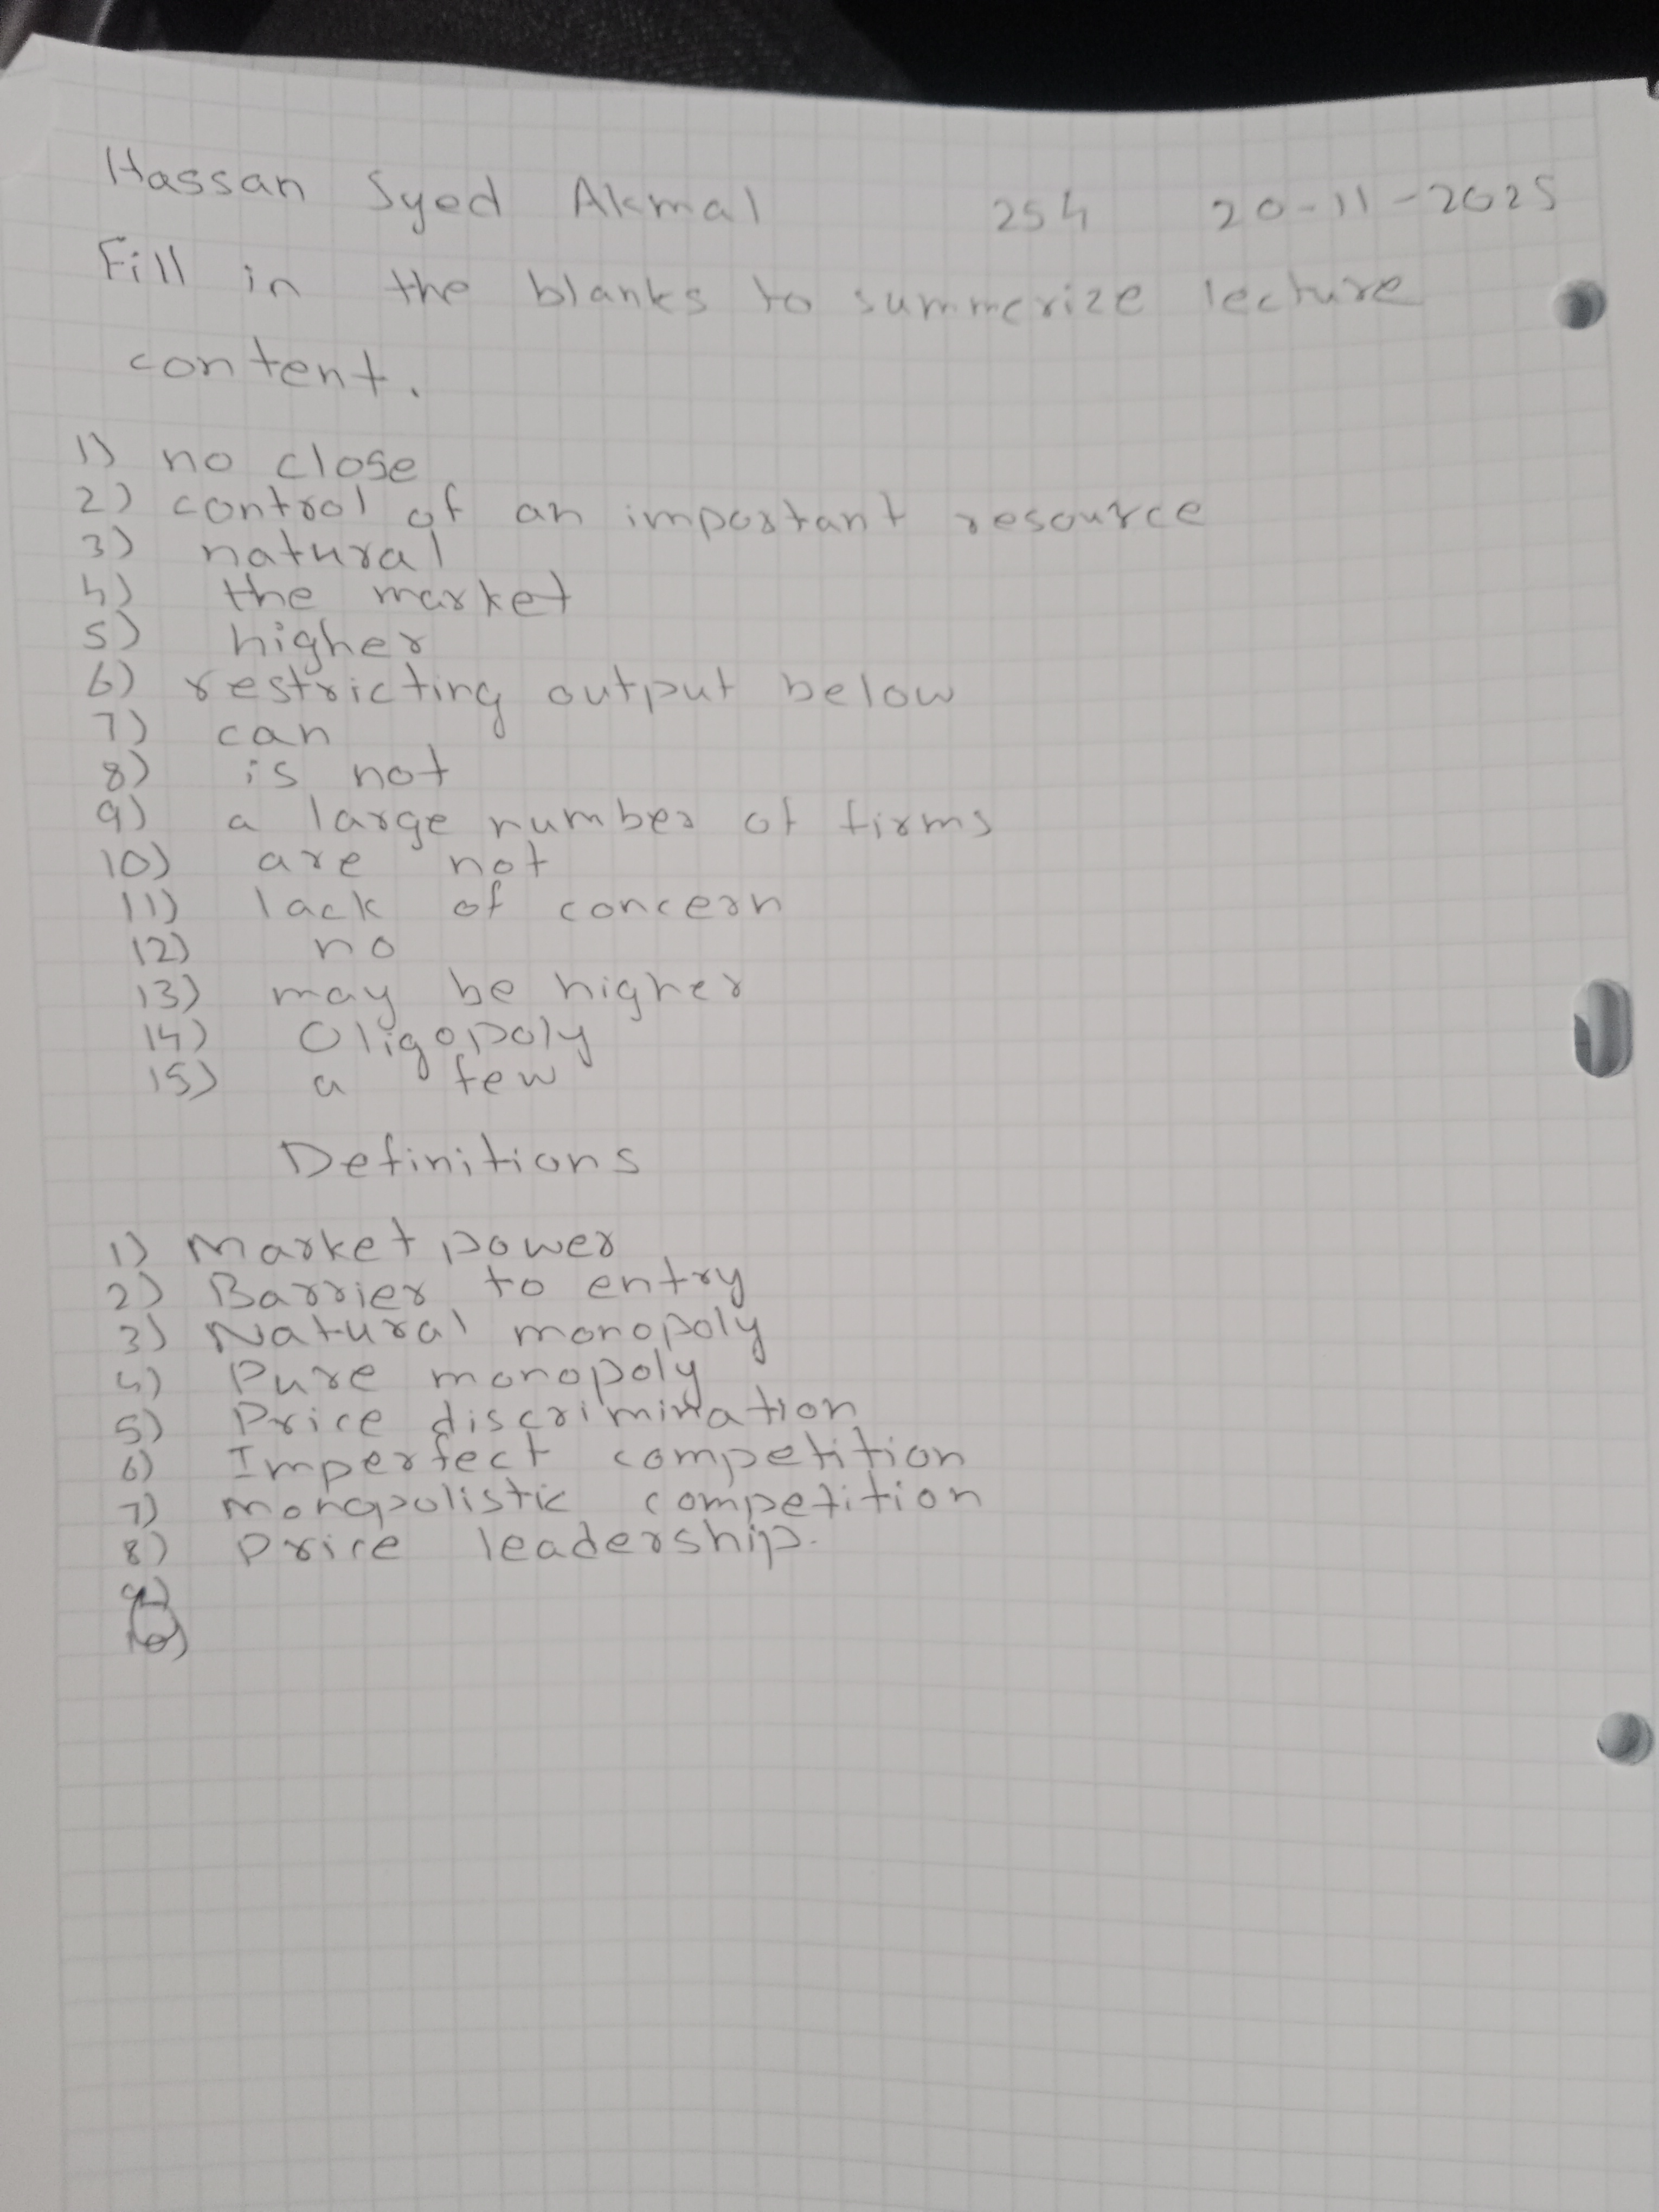 Hassan Syed Akmal 254 20-11-2025
Fill in the blanks to summerize lecture
content.
1) no close
2) control of an important resource
3) natural
4) the market
5) higher
6) restricting output below
7) can
8) is not
9) a large number of firms
10) are not
11) lack of concern
12) no
13) may be higher
14) Oligopoly
15) a few
Definitions
1) Market power
2) Barrier to entry
3) Natural monopoly
4) Pure monopoly
5) Price discrimination
6) Imperfect competition
7) monopolistic competition
8) Price leadership.
9)
10)